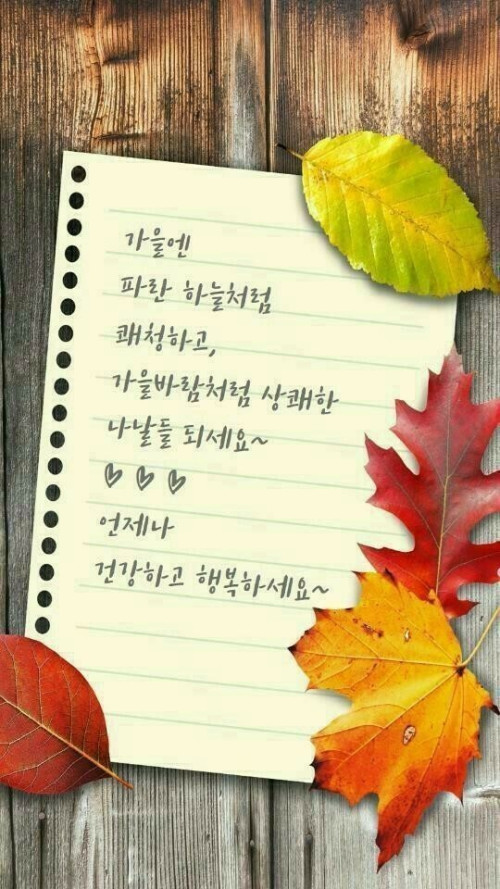 가을엔
파란 하늘처럼
쾌청하고,
가을바람처럼 상쾌한
나날들 되세요~
♡ ♡ ♡
언제나
건강하고 행복하세요~